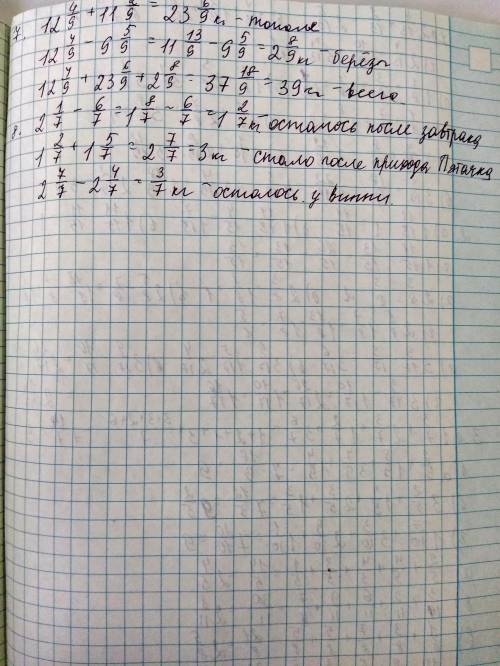 7. 12 4/9 + 11 2/9 = 23 6/9 кг - тополя
12 4/9 - 9 5/9 = 11 13/9 - 9 5/9 = 2 8/9 кг - берёзы
12 4/9 + 23 6/9 + 2 8/9 = 37 18/9 = 39 кг - всего
8. 2 1/7 - 6/7 = 1 8/7 - 6/7 = 1 2/7 кг - осталось после завтрака
1 2/7 + 1 5/7 = 2 7/7 = 3 кг - стало после прихода Пятачка
2 7/7 - 2 4/7 = 3/7 кг - осталось у винни.